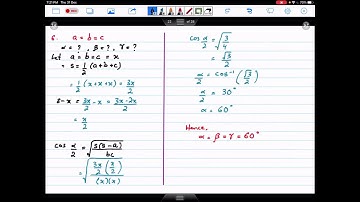 7:21 PM Thu 31 Dec
70%
6. a = b = c
α = ?, β = ?, γ = ?
Let a = b = c = x
= s = 1/2 (a+b+c)
= 1/2 (x+x+x) = 3x/2
s-x = 3x/2 - x = 3x-2x/2
= x/2
cos α/2 = √(s(s-a)/bc)
= √(3x/2 (x/2)/(x)(x))
cos α/2 = √(3/4)
= √3/2
α/2 = cos⁻¹ (√3/2)
α/2 = 30°
α = 60°
Hence,
α = β = γ = 60°